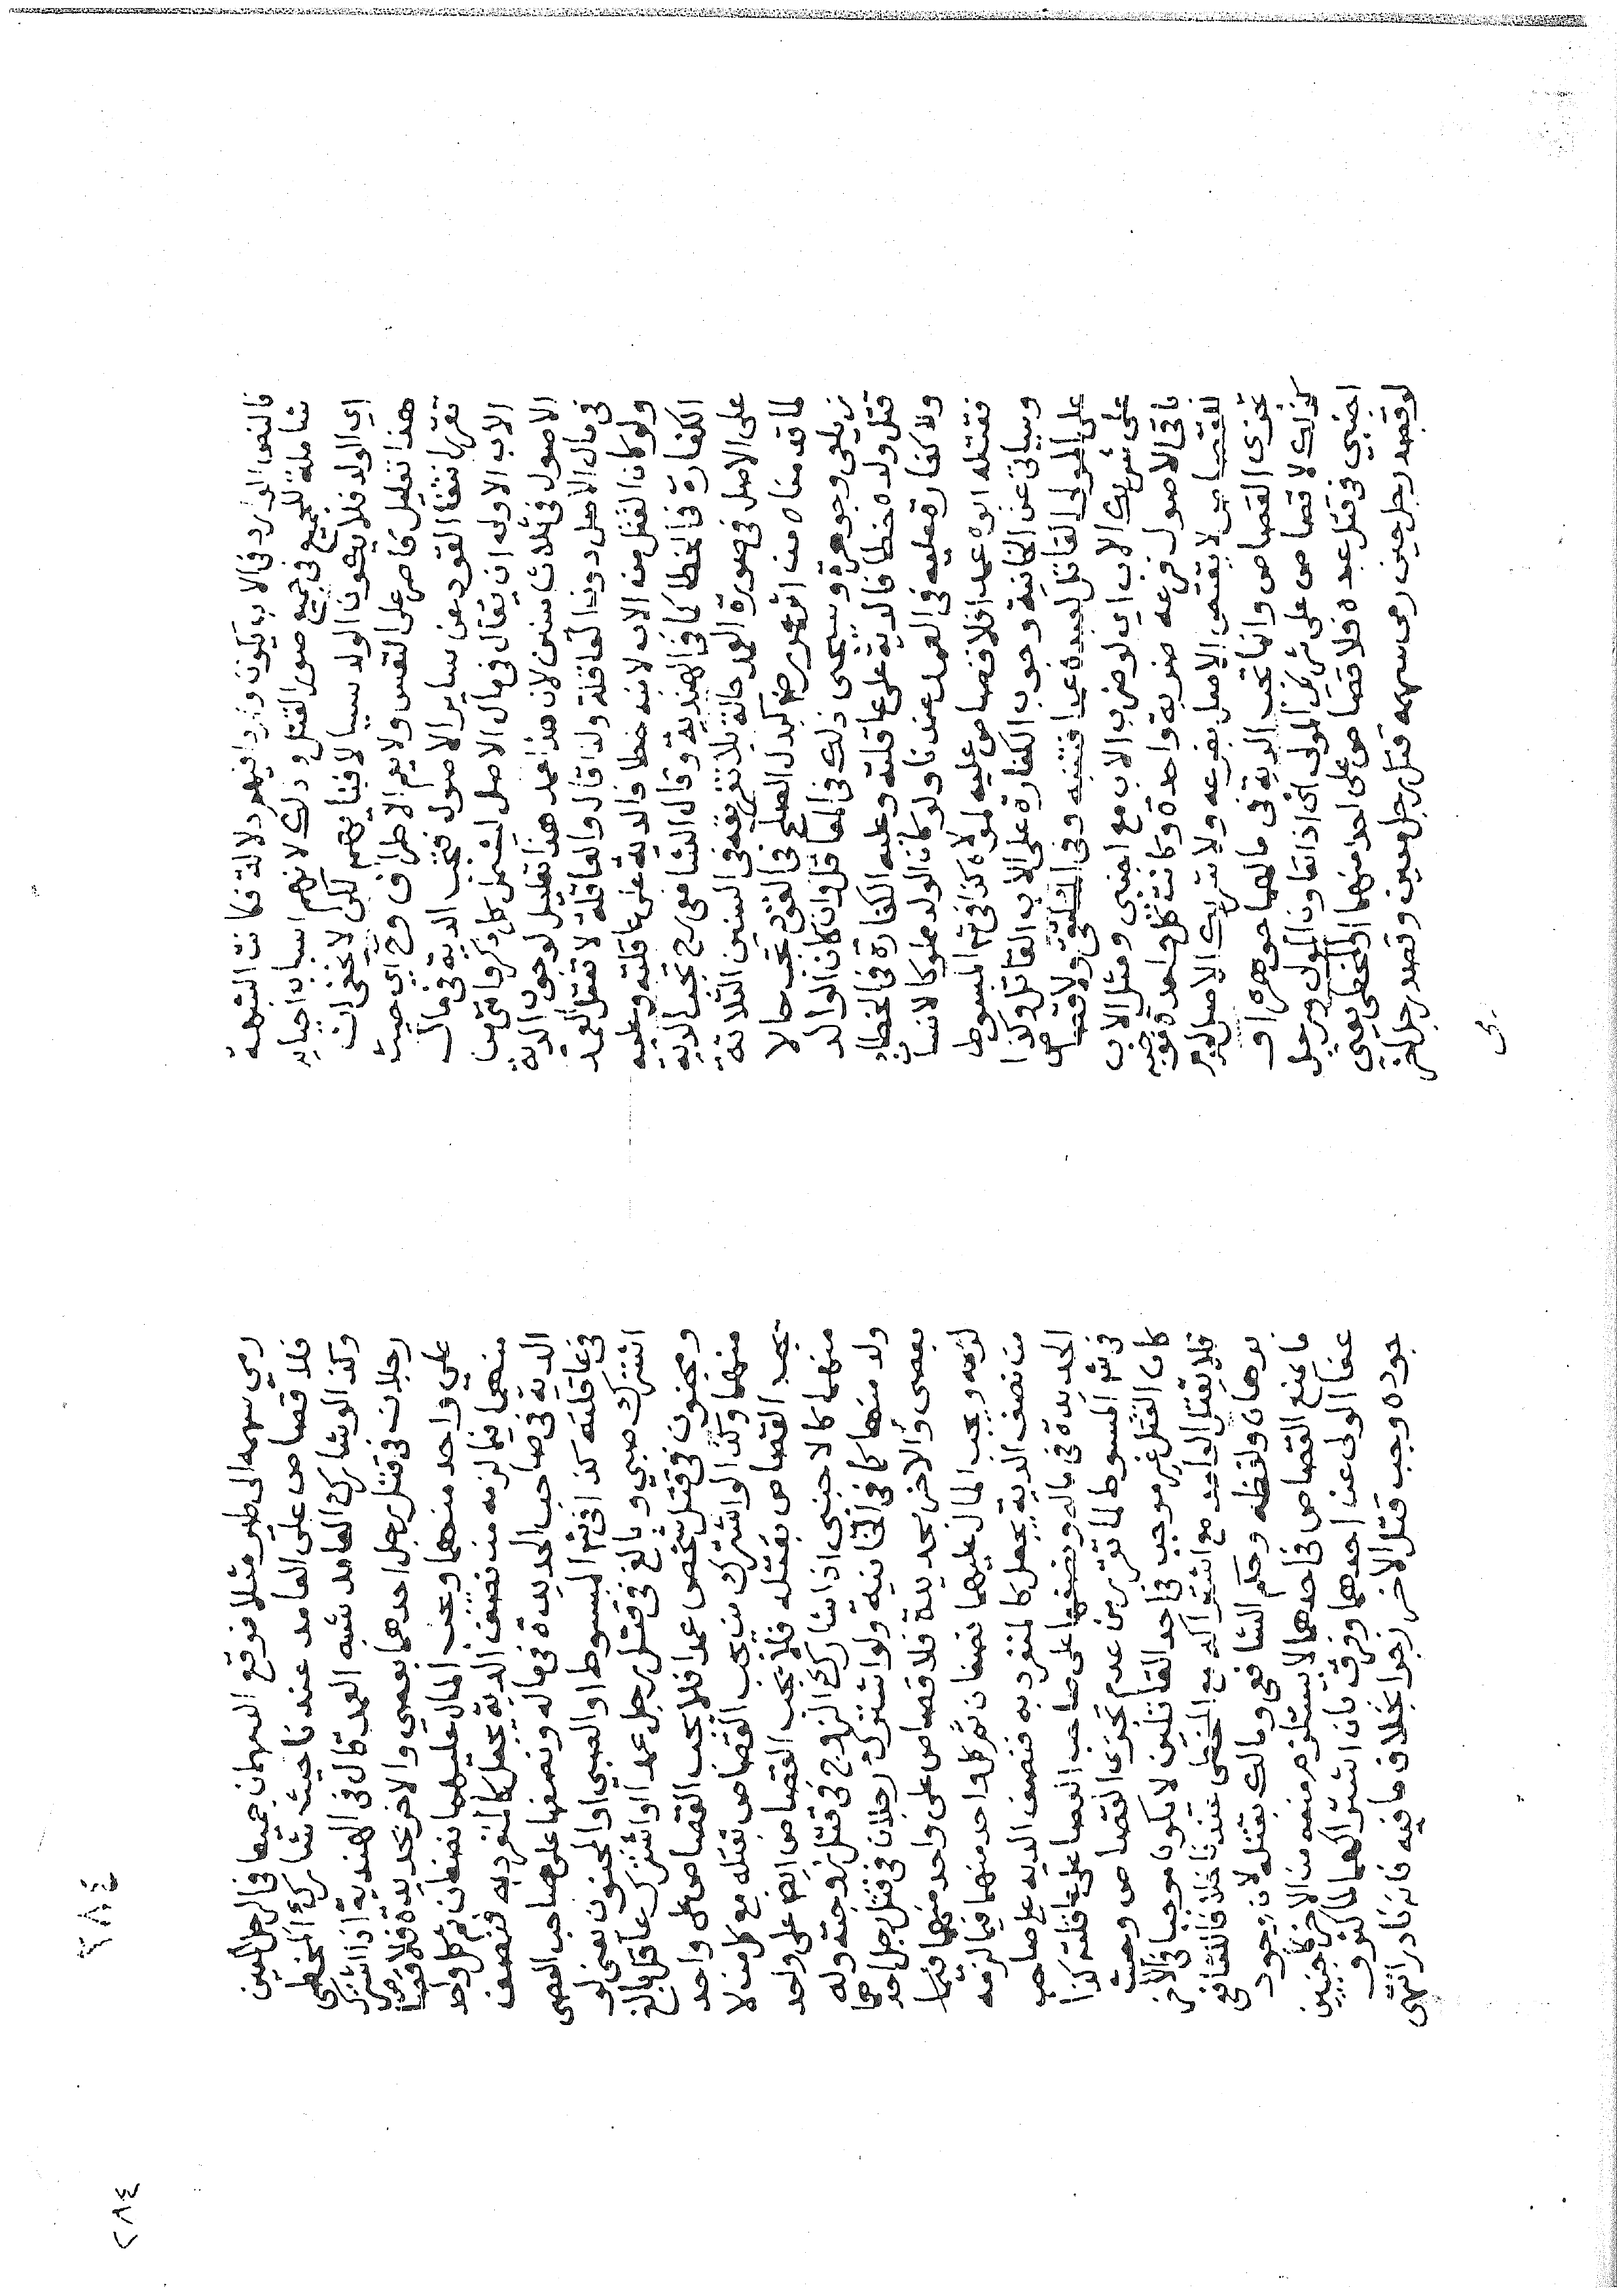 فالنص الوارد في الاب يكون واردا فيهم دلالة فكانت الشبهة
شاملة للجميع في جميع صور القتل وذلك لانهم اسباب احيايه
اي الولد فلا يكون الولد سببا لافنايهم لكن لا يخفى ان
هذا تعليل قاصر على النفس ولا يعم الاطراف وح اي حيث
تقرر انتفا القود عن ساير الاصول فتجب الدية في مال
الاب الاولى ان يقال في مال الاصل ليشمل كل ذكر وانثى من
الاصول في ثلاث سنين لان هذا عمد هذا تعليل لوجوب الدية
في مال الاصل دون العاقلة ولذا قال والعاقلة لا تعقل العمد
ولو كان القتل من الاب لابنه خطا فالدية على عاقلته وعليه
الكفارة في الخطا كما في الهندية وقال الشافعي رح تجب الدية
على الاصل في صورة العمد حالة بلا تفريقه في السنين الثلاثة
لما قدمناه من اثر عمر رض كبدل الصلح في القود تجب حالا
زيلعي وجوهرة وسيجى ذلك في المعاقل وان كان الوالد
قتل ولده خطا فالدية على عاقلته وعليه الكفارة في الخطا
ولا كفارة عليه في العمد عندنا ولو كان الولد مملوكا لانسان
فقتله ابوه عمدا فلا قصاص عليه لمولاه كذا في شم المبسوط
وسياتي عن الخانية وجوب الكفارة على الاب القاتل وكذا
على المولى القاتل لعبده عمدا فتنبه وفي الملتقى ولا قصاص
على شريك الاب اي لو ضرب الاب مع اجنبي ومثل الاب
باقي الاصول فرعه ضربة واحدة وكانت كل واحدة توجب
القصاص لا يقتص الاصل بفرعه ولا شريك الاصل لعدم
تجزى القصاص وانما تجب الدية في مالهما جوهرة او
كذلك لا قصاص على شريك المولى اي اذا تعاون المولى ورجل
اجنبي في قتل عبده فلا قصاص على احد منهما او المخطي يعني
لو قصد رجل حين رمى سهمه قتل رجل معين وقصد رجل اخر
رمى
٢٨٤
٢٨٤
رمي سهمه الى طير مثلا فوقع السهمان جميعا في الرجل المعين
فلا قصاص على العامد عندنا حيث شاركه المخطي
وكذا لو شارك العامد شبه العمد قال في الهندية اذا اشترك
رجلان في قتل رجل احدهما بعصى والاخر بحديدة فلا قصاص
على واحد منهما ويجب المال عليهما نصفان ثم كل واحد
منهما فيما لزمه من نصف الدية يجعل كالمنفرد به فنصف
الدية في صاحب الحديدة في ماله ونصفها على صاحب العصى
في عاقلته كذا في شم المبسوط او الصبي او المجنون يعني لو
اشترك صبي وبالغ في قتل رجل عمدا او اشترك عاقل بالغ
ومجنون في قتل شخص عمدا فلا يجب القصاص على واحد
منهما وكذا لو اشترك من يجب القصاص بقتله مع كل من لا
يجب القصاص بقتله فلا يجب القصاص ايضا على واحد
منهما كالاجنبي اذا شارك الزوج في قتل زوجته وله
ولد منها كما في الخانية ولو اشترك رجلان في قتل رجل احدهما
بعصى والاخر بحديدة فلا قصاص على واحد منهما فيما
لزمه ويجب المال عليهما نصفان ثم كل واحد منهما فيما لزمه
من نصف الدية يجعل كالمنفرد به فنصف الديه على صاحب
الحديدة في ماله ونصفها على صاحب العصا على عاقلته كذا
في شم المبسوط لما تقرر من عدم تجزى القصاص وحيث
كان القتل غير موجب في احد القاتلين لا يكون موجبا في الاخر
فلا يقتل العامد مع اشتراكه مع المخطي عندنا خلافا للشافعي
برهان ولفظه وحكم الشافعي ومالك بقتله لان وجود
ما يمنع القصاص في احدهما لا يستلزم منعه من الاخر كاجنبيين
عفا الولى عن احدهما وفرق بان اشتراكهما لما كثر و
جوده وجب قتل الاخر زجرا بخلاف ما فيه فانه نادر انتهى